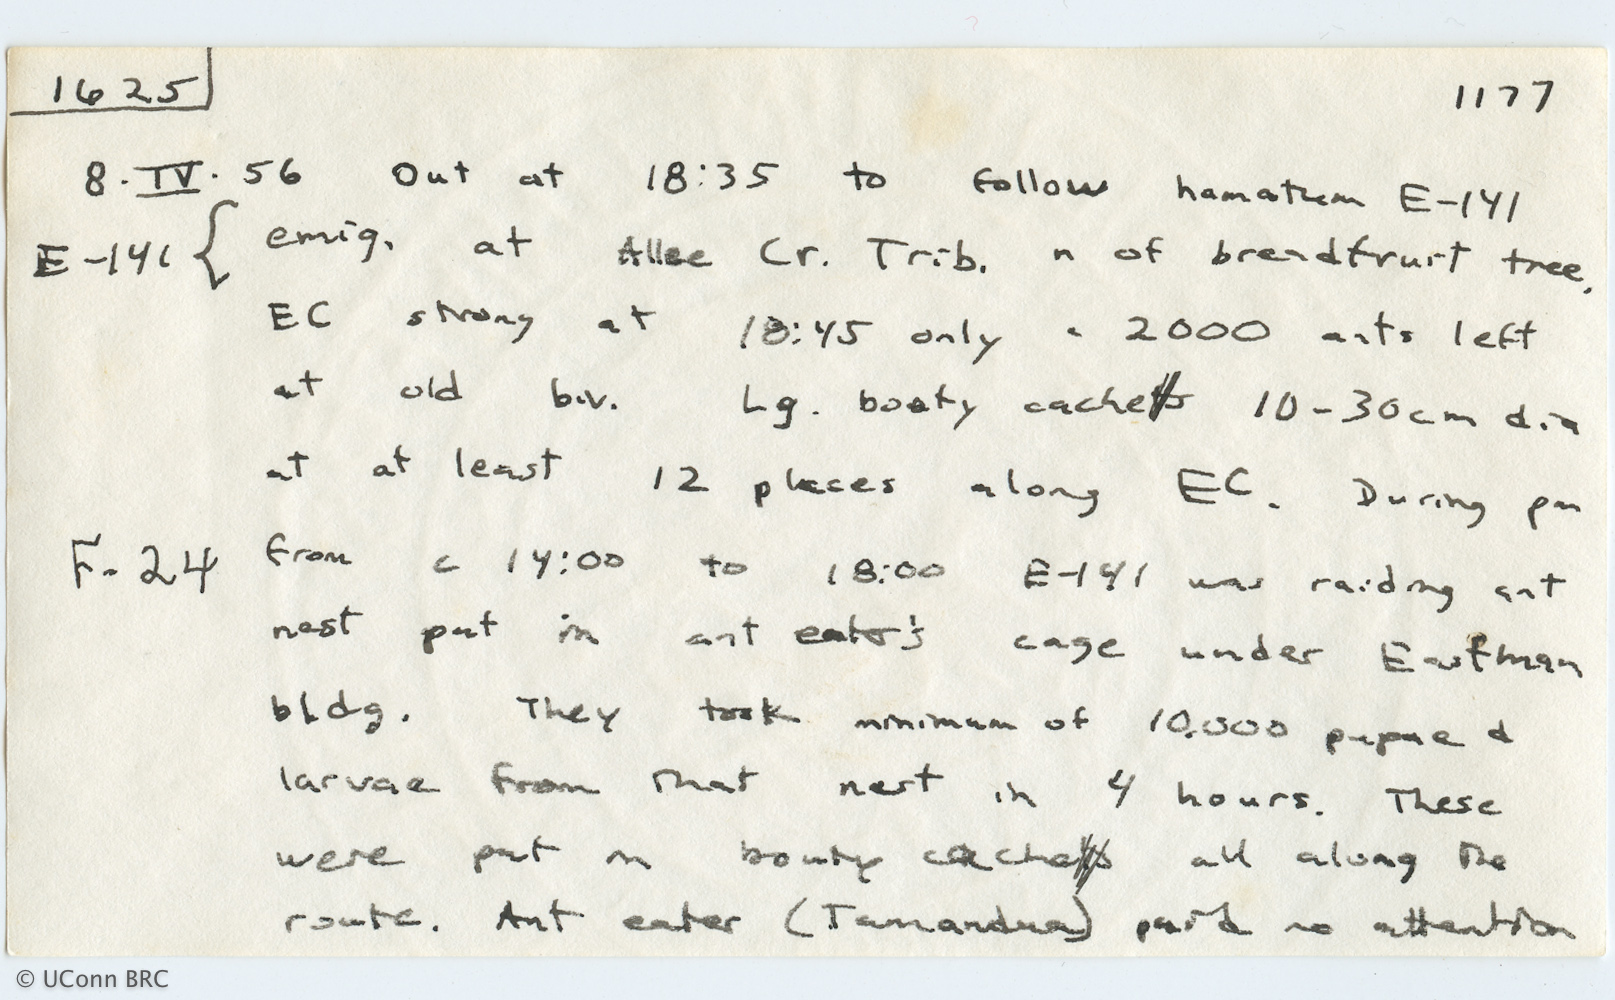 1625
1177
8·IV·56 Out at 18:35 to follow hamatum E-141
E-141 { emig. at Allee Cr. Trib. n of breadfruit tree.
EC strong at 18:45 only c 2000 ants left
at old biv. Lg. booty caches 10-30cm dia
at at least 12 places along EC. During pm
F-24 from c 14:00 to 18:00 E-141 was raiding ant
nest put in ant eater's cage under Eastman
bldg. They took minimum of 10,000 pupae &
larvae from that nest in 4 hours. These
were put in booty caches all along the
route. Ant eater (Tamandua) paid no attention
© UConn BRC